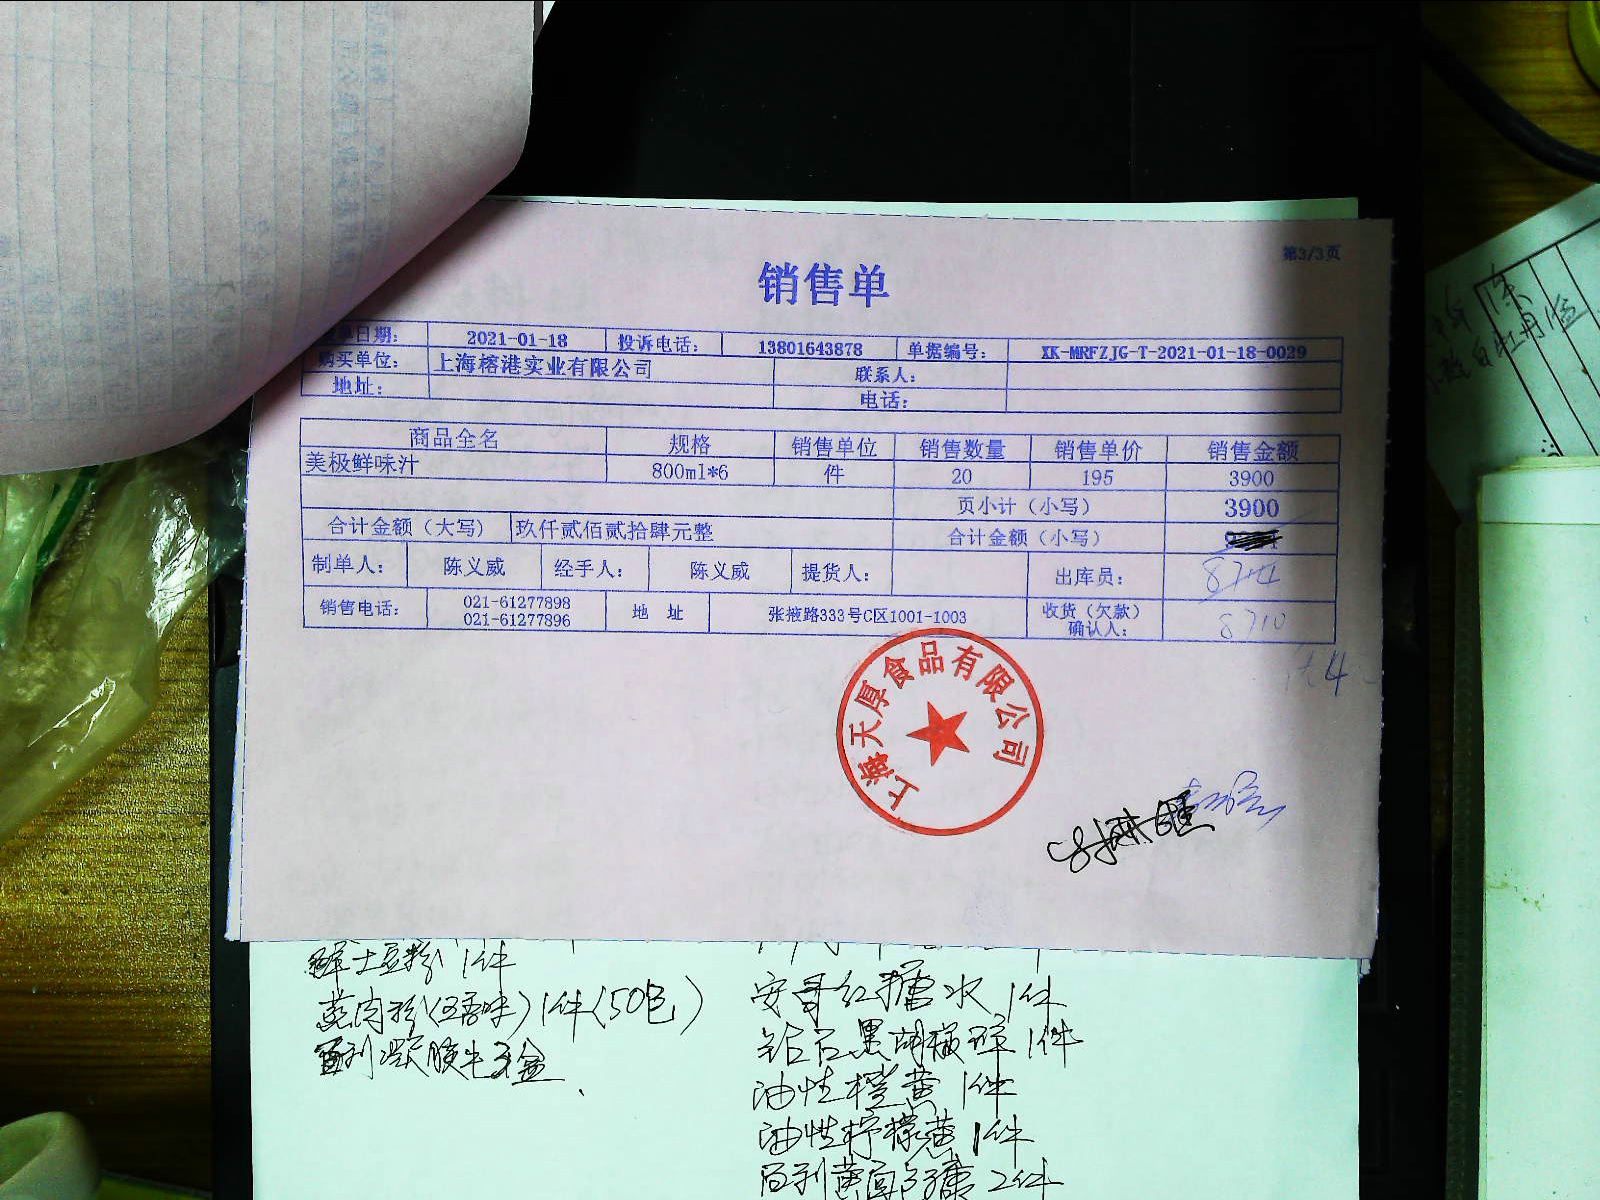 第3/3页
销售单
单日期： 2021-01-18 投诉电话： 13801643878 单据编号： XK-MRFZJG-T-2021-01-18-0029
购买单位： 上海榕港实业有限公司 联系人：
地址： 电话：
商品全名 规格 销售单位 销售数量 销售单价 销售金额
美极鲜味汁 800ml*6 件 20 195 3900
页小计（小写） 3900
合计金额（大写） 玖仟贰佰贰拾肆元整 合计金额（小写）
制单人： 陈义威 经手人： 陈义威 提货人： 出库员：
销售电话： 021-61277898 021-61277896 地 址 张掖路333号C区1001-1003 收货（欠款）确认人： 8710
上海天厚食品有限公司
鲜土豆粉 1件
1件(50包)
安哥红糖水 1件
钻石黑胡椒碎 1件
油性橙黄 1件
油性柠檬黄 1件
2件